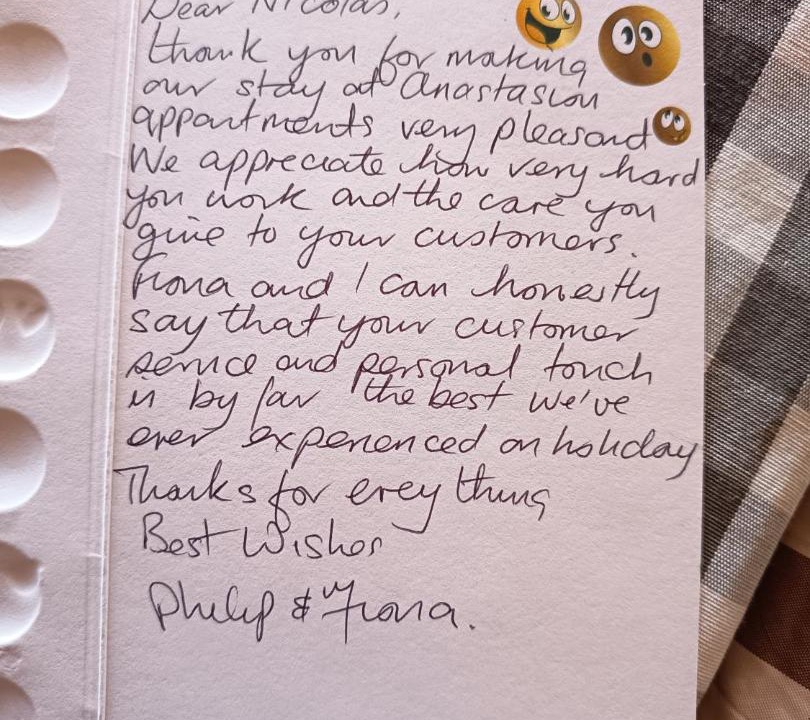 Dear Nicolas,
thank you for making
our stay at Anastasion
appartments very pleasand
We appreciate how very hard
you work and the care you
give to your customers.
Fiona and I can honestly
say that your customer
service and personal touch
is by far the best we've
ever experienced on holiday
Thanks for everything
Best Wishes
Philip & Fiona.